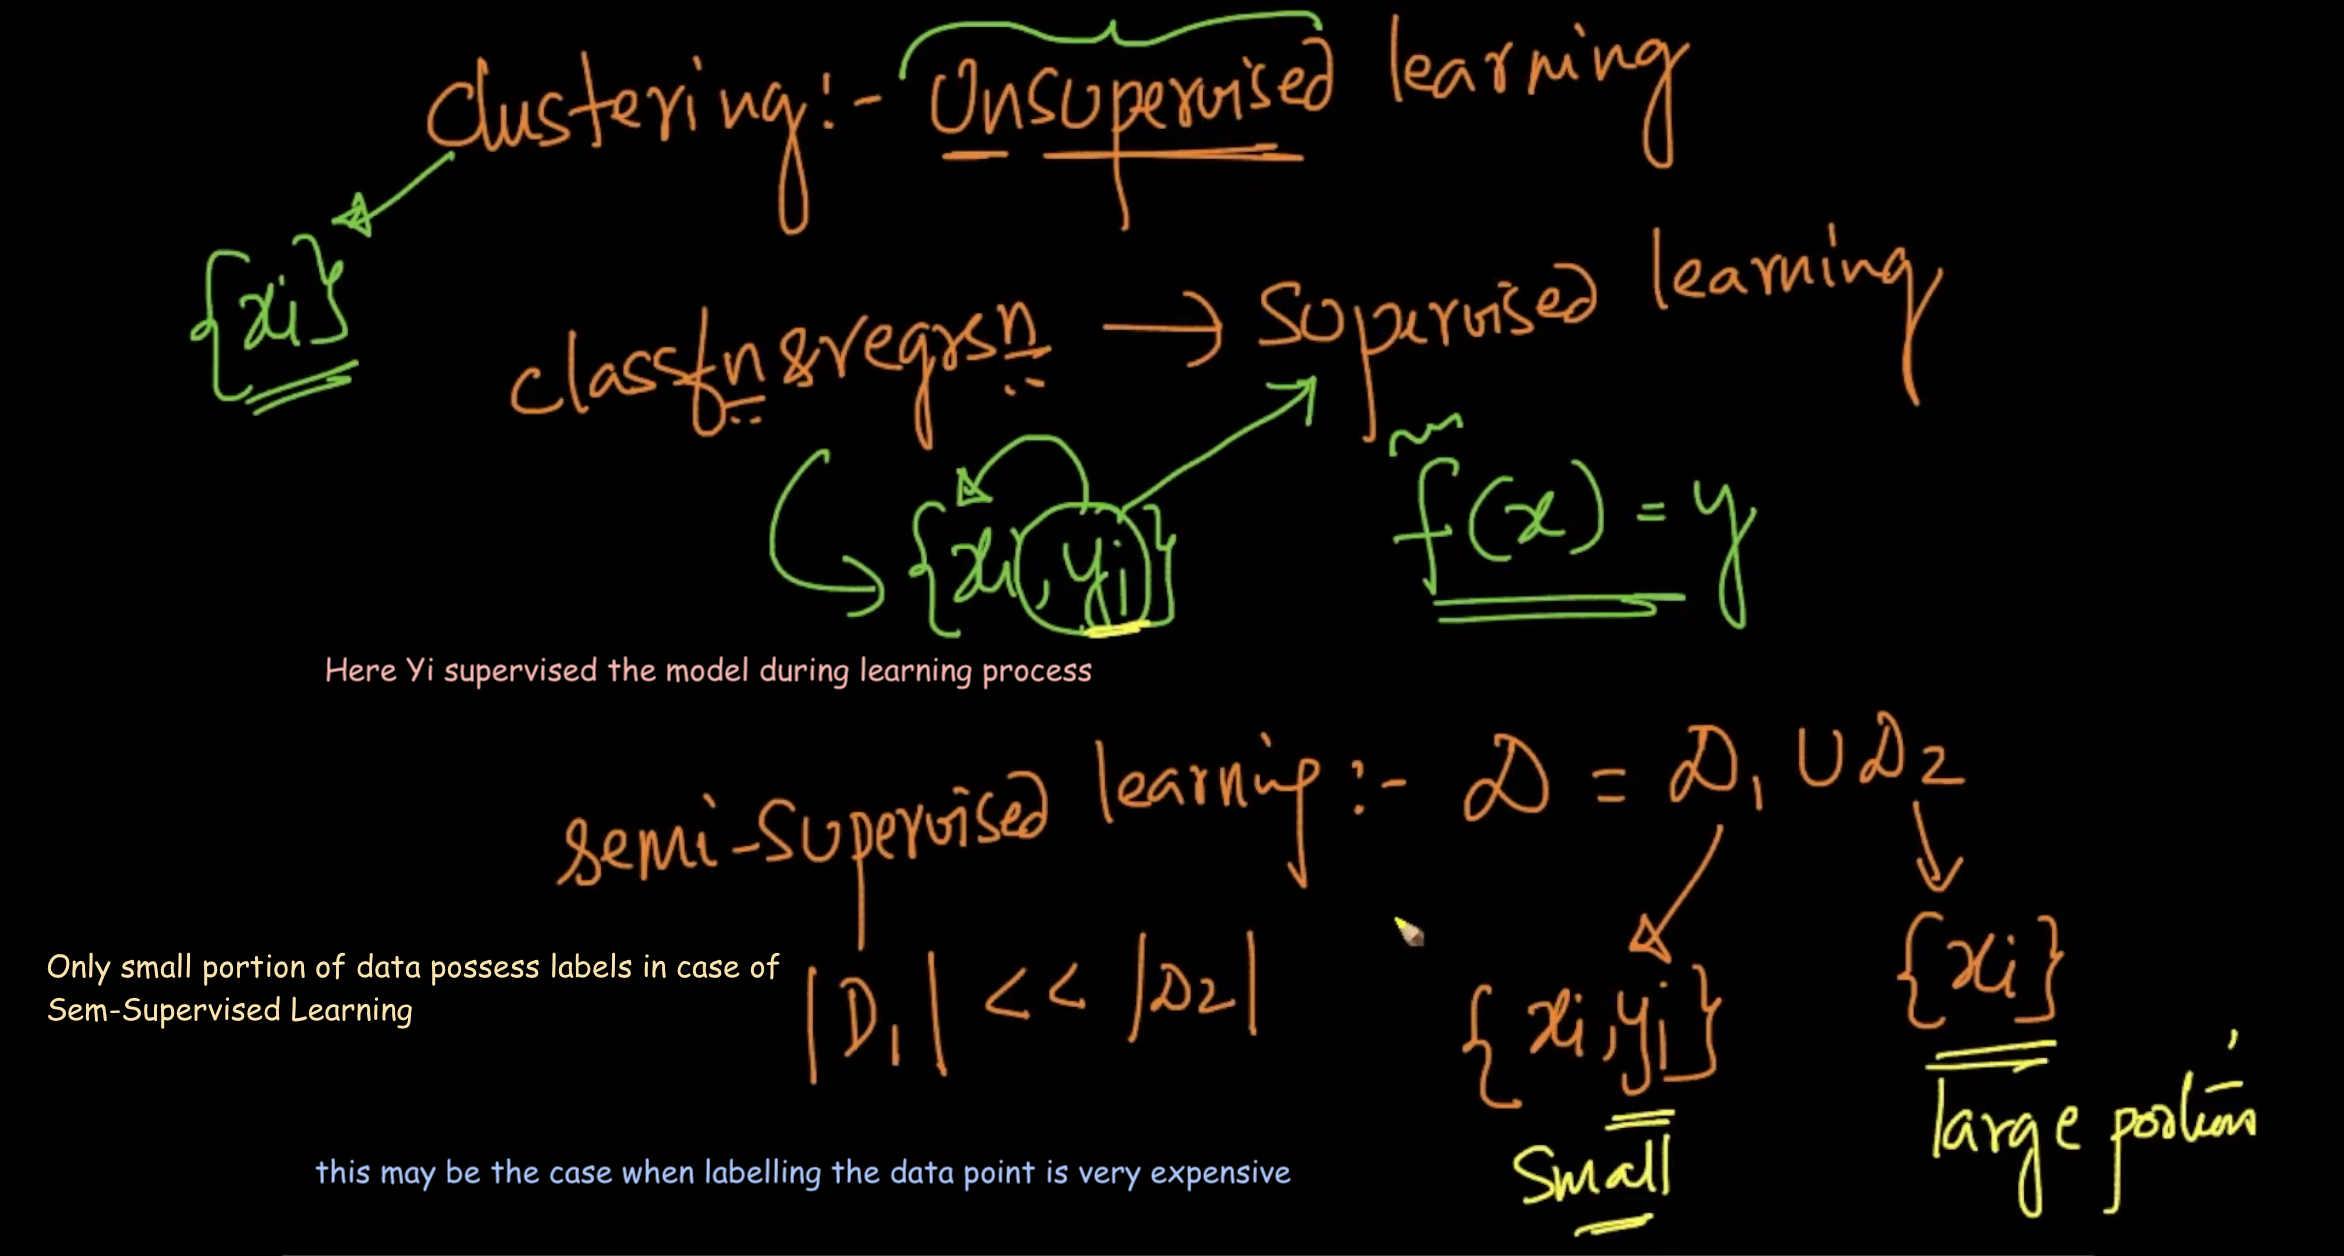 Clustering:- Unsupervised learning
{xi}
classfn & regrsn → Supervised learning
{xi, yi} f(x) = y
Here Yi supervised the model during learning process
semi-supervised learning:- D = D1 ∪ D2
Only small portion of data possess labels in case of
Sem-Supervised Learning
|D1| << |D2| {xi, yi} {xi}
small large portion
this may be the case when labelling the data point is very expensive